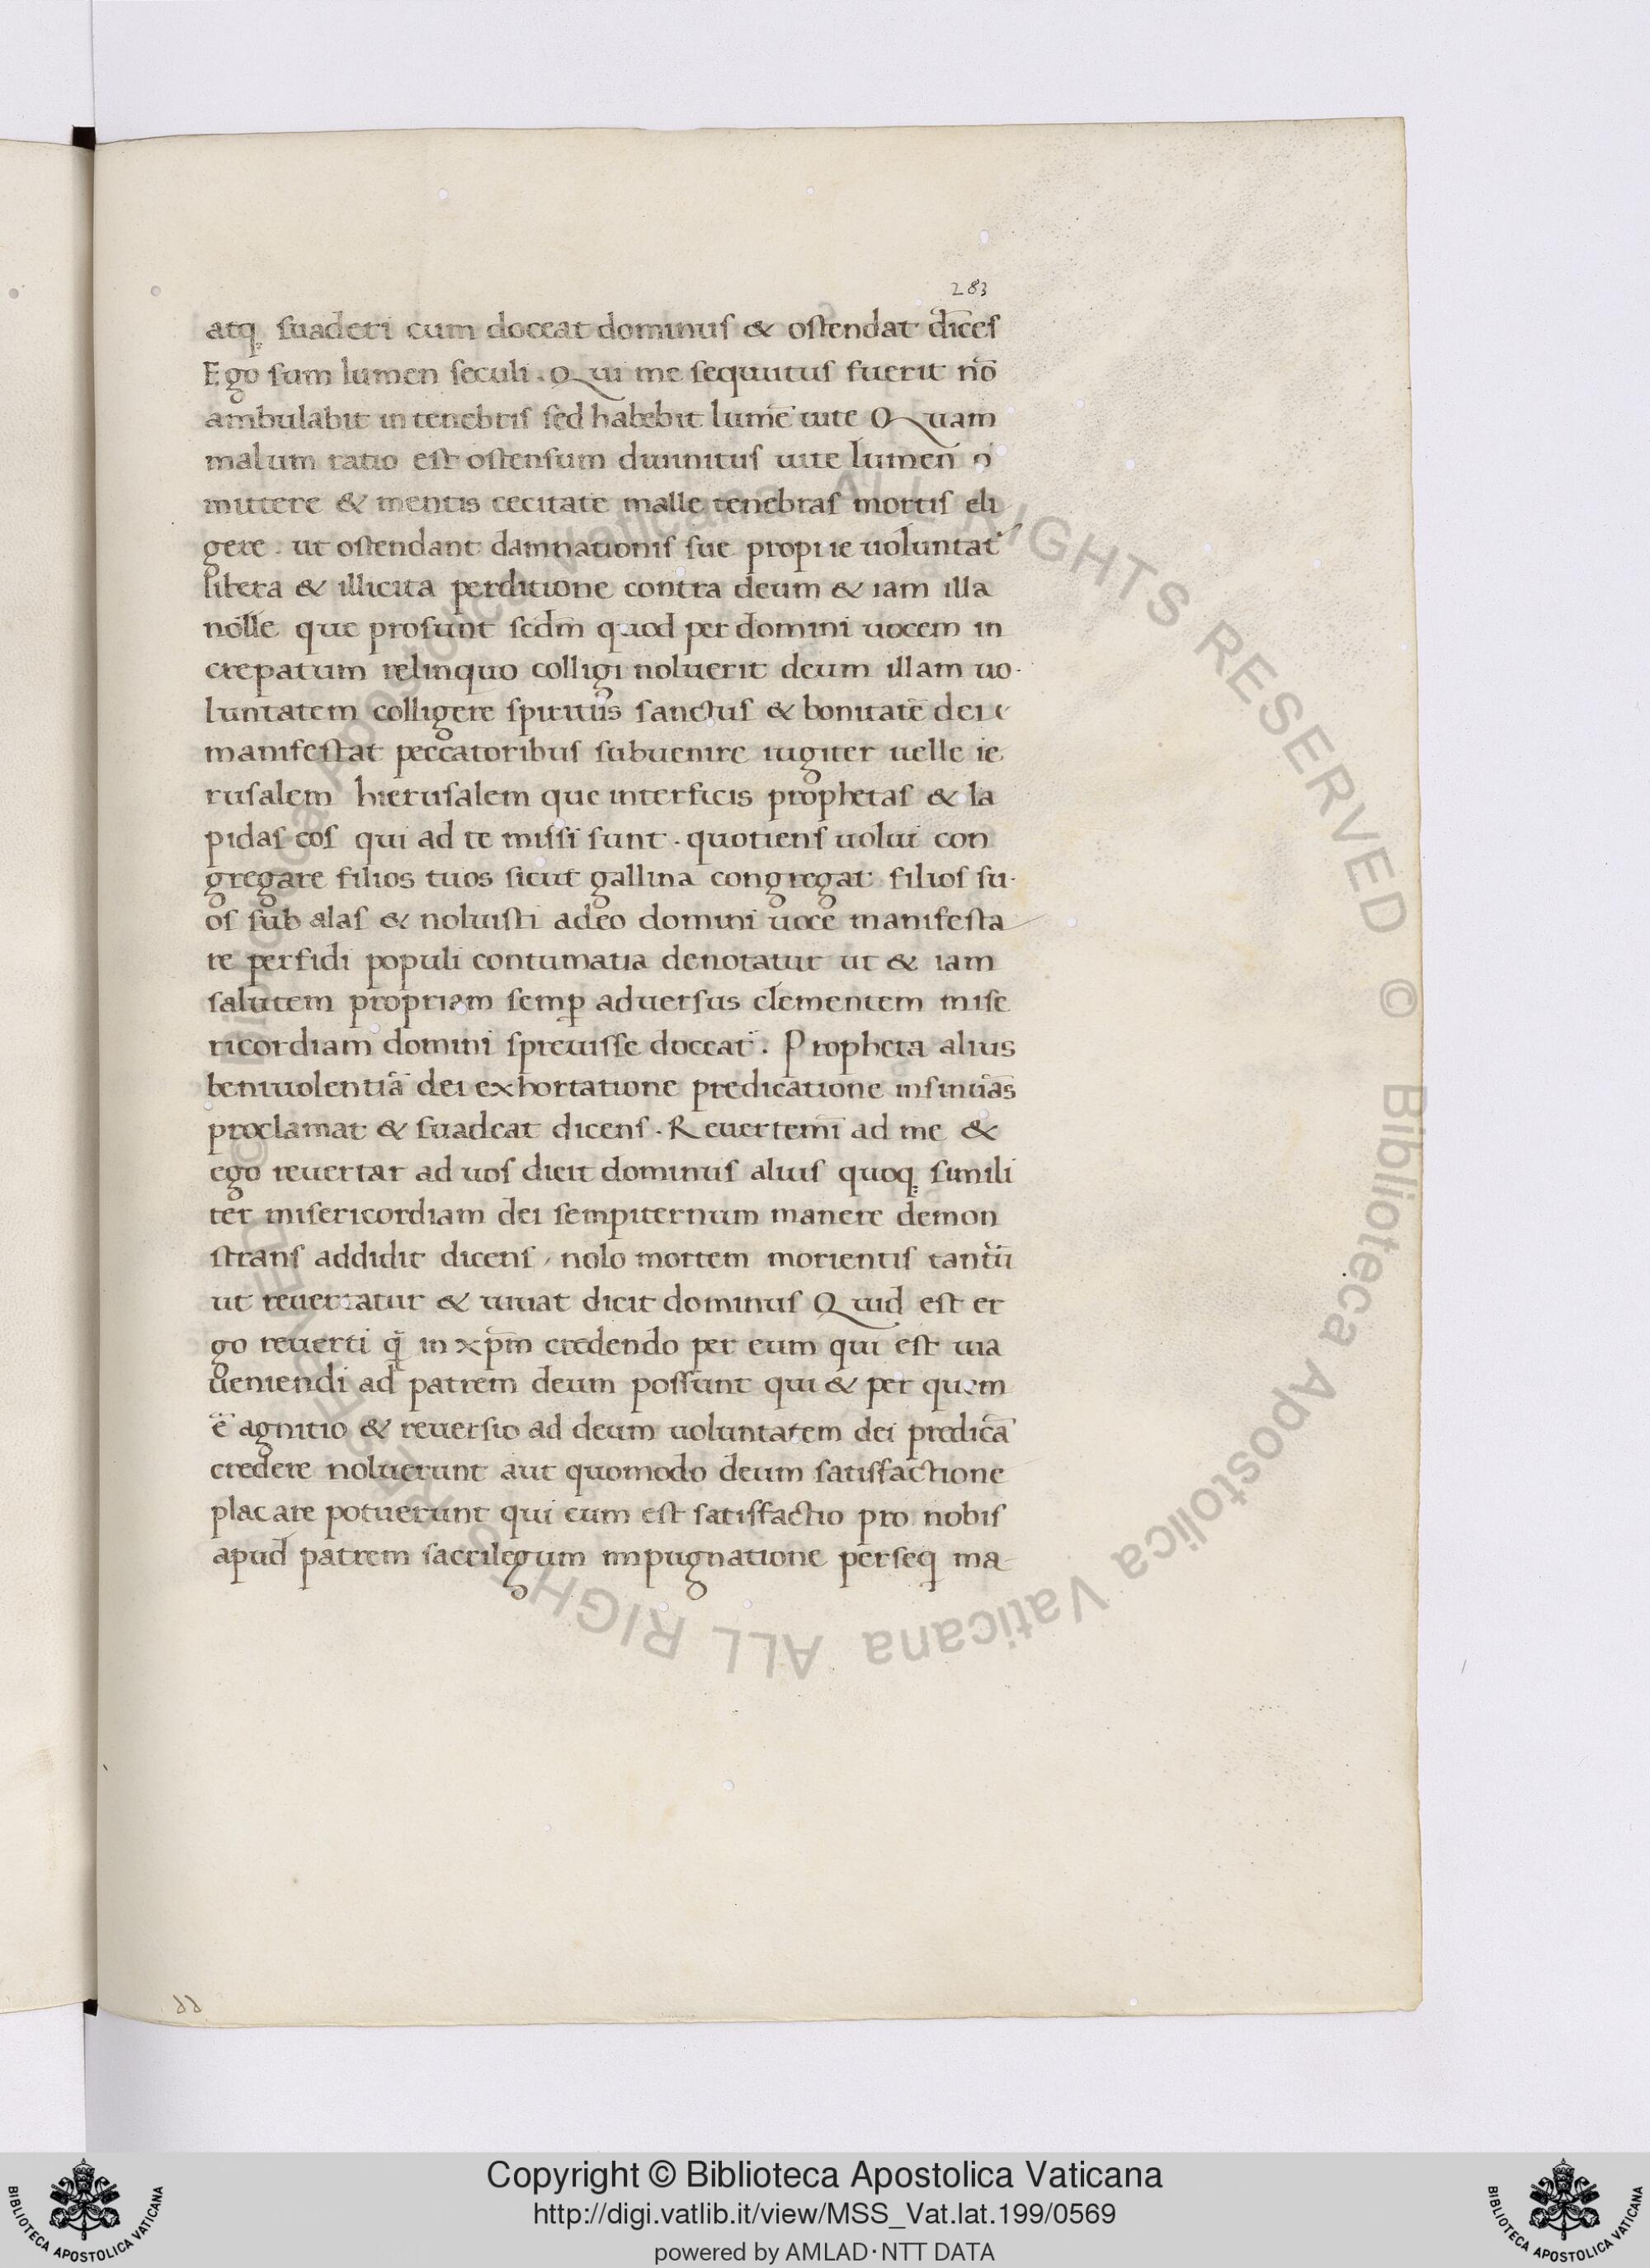 283
atq; suaderi cum doceat dominus & ostendat dic̄es
Ego sum lumen seculi. Qui me sequutus fuerit nō
ambulabit in tenebris sed habebit lumē uite Quam
malum ratio est ostensum diuinitus uite lumen o
mittere & mentis cecitate malle tenebras mortis eli
gere. ut ostendant damnationis sue proprie uoluntat̄
libera & illicita perditione contra deum & iam illa
nolle que prosunt sedm̄ quod per domini uocem in
crepatum relinquo colligi noluerit deum illam uo
luntatem colligere spiritus sanctus & bonitatē dei
manifestat peccatoribus subuenire iugiter uelle ie
rusalem hierusalem que interficis prophetas & la
pidas eos qui ad te missi sunt. quotiens uolui con
gregare filios tuos sicut gallina congregat filios su
os sub alas & noluisti adeo domini uoce manifesta
te perfidi populi contumatia denotatur ut & iam
salutem propriam semp̲ aduersus clementem mise
ricordiam domini spreuisse doceat. Propheta alius
beniuolentiā dei exhortatione predicatione insinuās
proclamat & suadeat dicens. Reuertemī ad me &
ego reuertar ad uos dicit dominus alius quoq; simili
ter misericordiam dei sempiternum manere demon
strans addidit dicens, nolo mortem morientis tantū
ut reuertatur & uiuat dicit dominus Quid est er
go reuerti q̄ in xpm̄ credendo per eum qui est uia
ueniendi ad patrem deum possunt qui & per quem
ē agnitio & reuersio ad deum uoluntatem dei predicā
credere noluerunt aut quomodo deum satisfactione
placare potuerunt qui eum est satisfactio pro nobis
apud patrem sacrilegum impugnatione perseq̄ ma
Copyright © Biblioteca Apostolica Vaticana
http://digi.vatlib.it/view/MSS_Vat.lat.199/0569
powered by AMLAD·NTT DATA
BIBLIOTECA APOSTOLICA VATICANA
BIBLIOTECA APOSTOLICA VATICANA
© Biblioteca Apostolica Vaticana ALL RIGHTS RESERVED
© Biblioteca Apostolica Vaticana ALL RIGHTS RESERVED